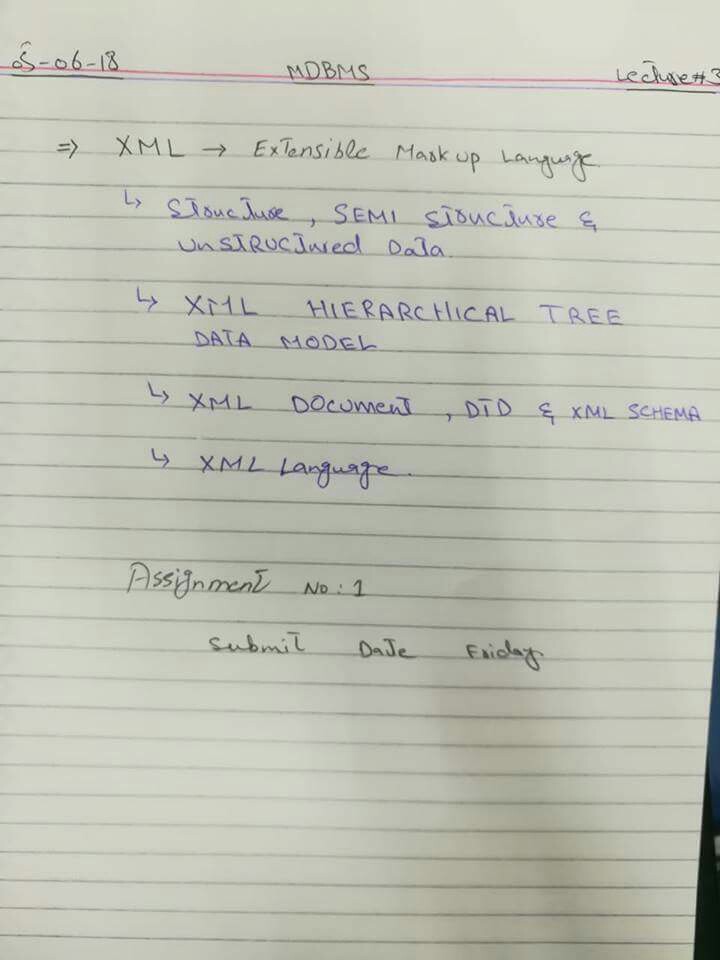 05-06-18 MDBMS Lecture # 3
⇒ XML → Extensible Markup Language
↳ Structure, SEMI Structure &
UnSTRUCTured Data.
↳ XML HIERARCHICAL TREE
DATA MODEL
↳ XML DOcument, DTD & XML SCHEMA
↳ XML Language.
Assignment No: 1
Submit Date Friday.